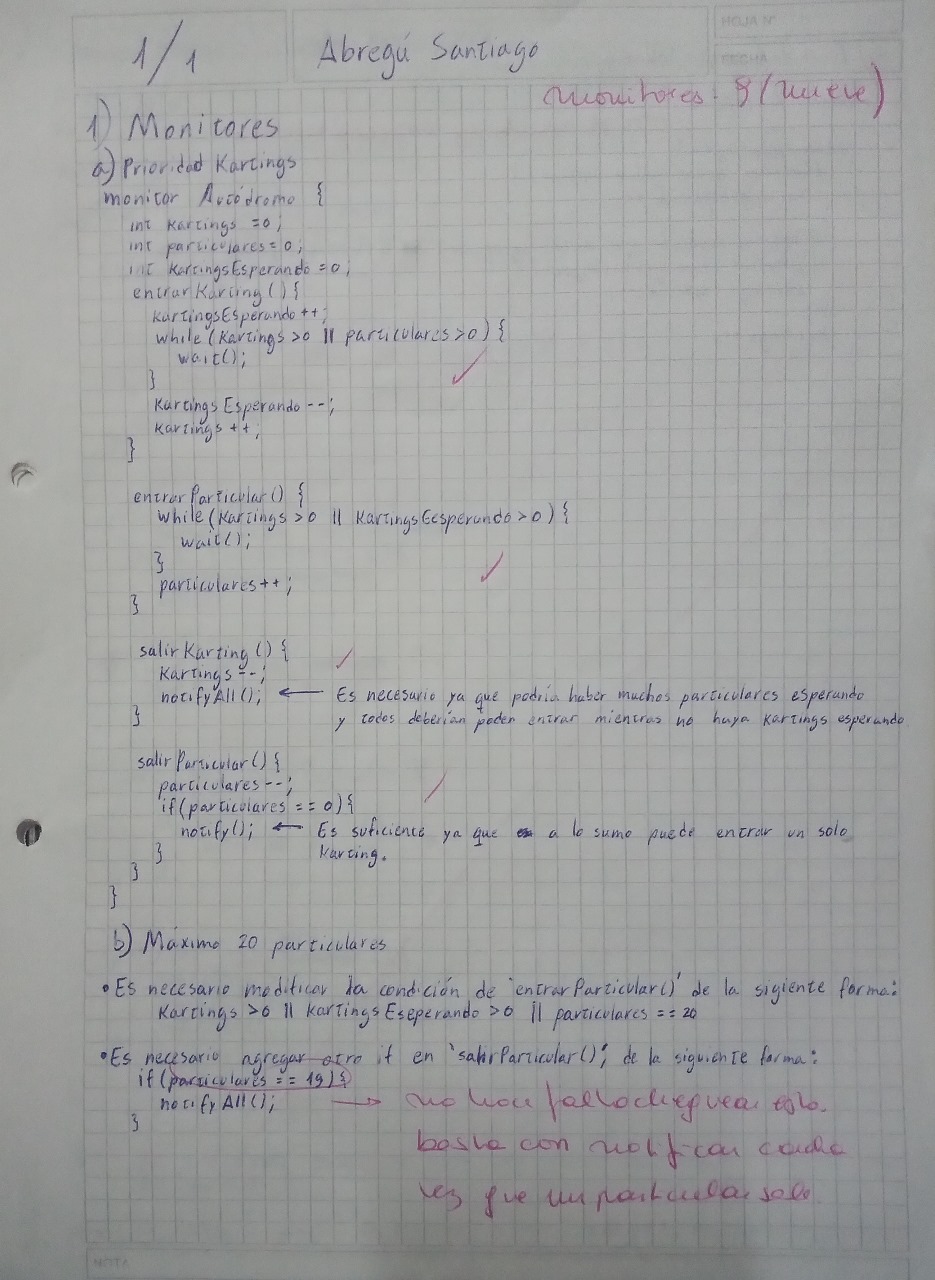 HOJA Nº
FECHA
1/1
Abregú Santiago
monitores: 9 (nueve)
1) Monitores
a) Prioridad Kartings
monitor Autódromo {
int kartings =0;
int particulares=0;
int kartingsEsperando =0;
entrarKarting () {
kartingsEsperando++;
while (kartings >0 || particulares >0) {
wait();
}
kartingsEsperando --;
kartings ++;
}
entrarParticular() {
while (kartings >0 || kartingsEesperando >0) {
wait();
}
particulares++;
}
salirKarting () {
kartings --;
notifyAll(); ← Es necesario ya que podría haber muchos particulares esperando
y todos deberían poder entrar mientras no haya kartings esperando
}
salirParticular () {
particulares --;
if (particulares == 0) {
notify(); ← Es suficiente ya que a lo sumo puede entrar un solo
karting.
}
}
}
b) Máximo 20 particulares
• Es necesario modificar la condición de 'entrarParticular()' de la sigiente forma:
kartings >0 || kartingsEseperando >0 || particulares == 20
• Es necesario agregar otro if en 'salirParticular()', de la siguiente forma:
if (particulares == 19) {
notifyAll(); → no hace falta chequear esto.
}
basta con notificar cada
vez que un particular sale
NOTA